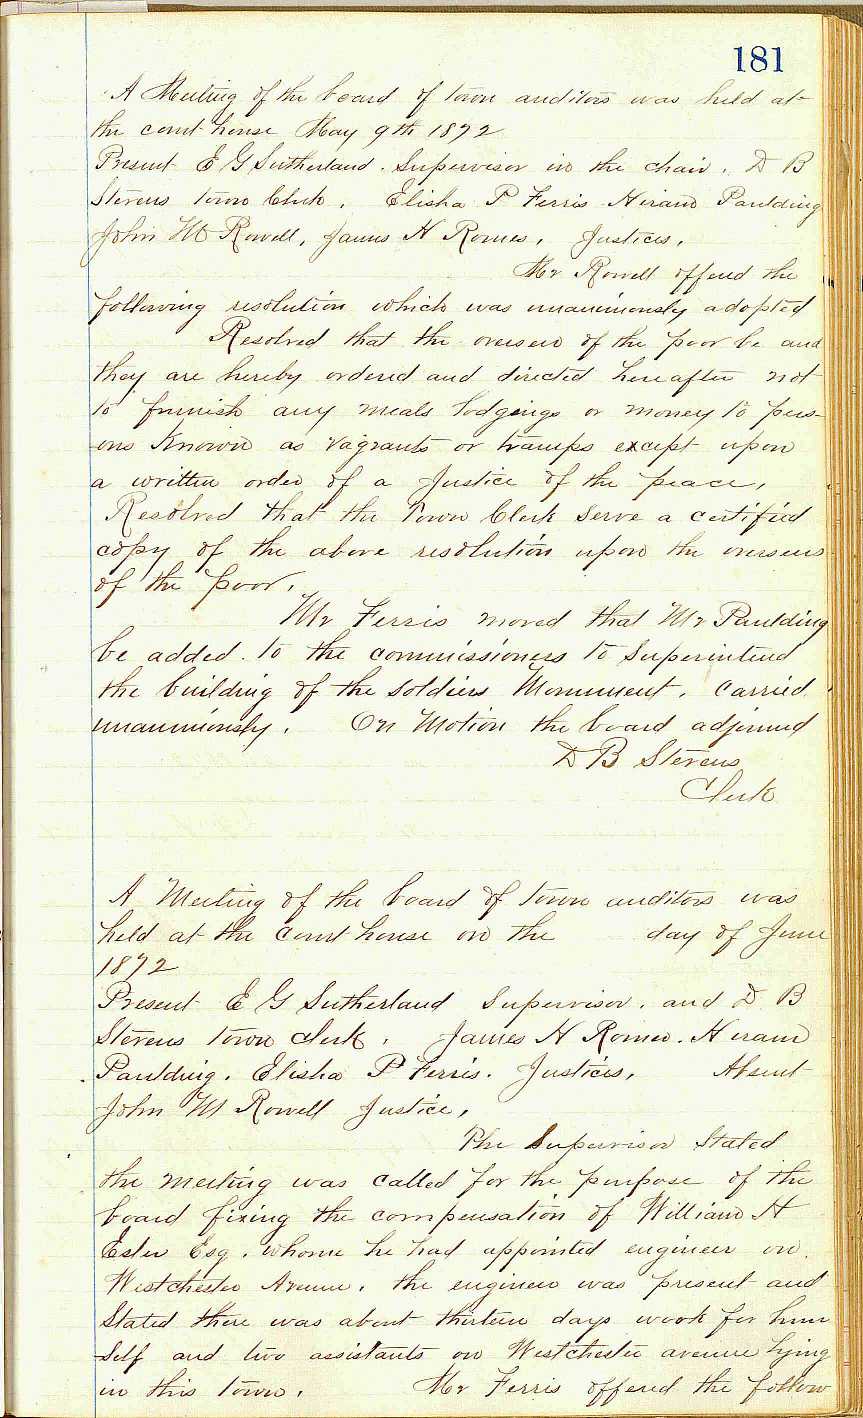 181
A Meeting of the board of town auditors was held at
the court house May 9th 1872
Present E G Sutherland. Supervisor in the chair. D B
Stevens town Clerk. Elisha P Ferris Hiram Paulding
John M Rowell, James H Romer, Justices.
Mr Rowell offered the
following resolution which was unanimously adopted
Resolved that the overseer of the poor be and
they are hereby ordered and directed hereafter not
to furnish any meals lodgeings or money to pers-
ons Known as vagrants or tramps except upon
a written order of a Justice of the peace.
Resolved that the Town Clerk serve a certified
copy of the above resolution upon the overseers
of the poor.
Mr Ferris moved that Mr Paulding
be added to the commissioners to Superintend
the building of the Soldiers Monument. carried
unanimously. On Motion the board adjourned
D B Stevens
Clerk
A Meeting of the board of town auditors was
held at the court house on the day of June
1872
Present E G Sutherland Supervisor. and D B
Stevens town clerk. James H Romer. Hiram
Paulding. Elisha P Ferris. Justices. Absent
John M Rowell Justice.
The Supervisor Stated
the meeting was called for the purpose of the
board fixing the compensation of William H
Esq. whome he had appointed engineer on
Westchester Avenue. the engineer was present and
Stated there was about thirteen days work for him
self and two assistants on Westchester avenue lying
in this town. Mr Ferris offered the follow